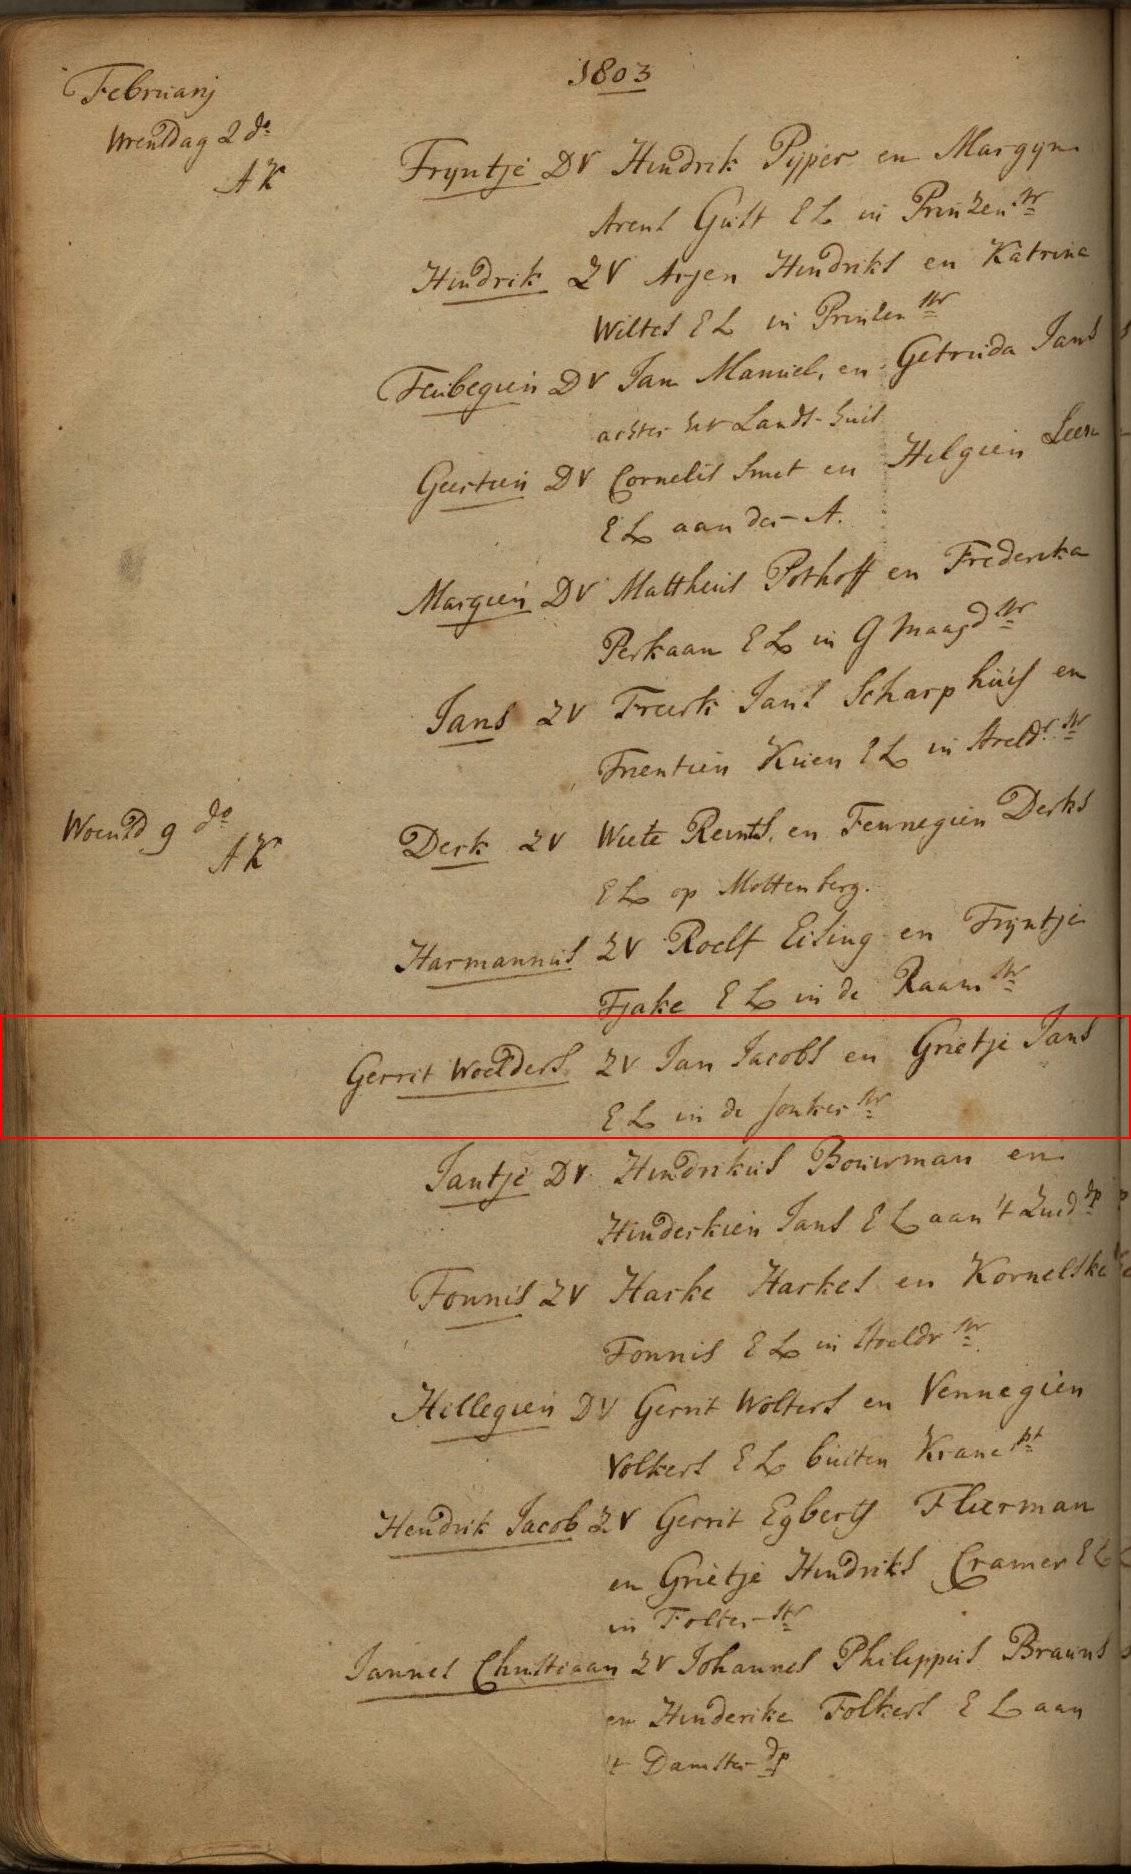 1803
Februarij
Wrensdag 2 do
AK
Fryntje DV Hindrik Pyper en Margyn
Arens Gust EL in Prinzen str
Hindrik ZV Arjen Hindriks en Katrina
Wiltes EL in Prinsen str
Feubegien DV Jan Manuel, en Getruida Jans
achter het Lands-huis
Geertien DV Cornelis Smet en Helgien
EL aan der-A.
Margien DV Mattheus Pothoff en Frederika
Perkaan EL in G Maagd str
Jans ZV Freerk Jans Scharphuis en
Frientien Kuen EL in Streldr str
Woensd 9 do
AK
Derk ZV Wiete Reints, en Fennegien Derks
EL op Mottenberg.
Harmannus ZV Roelf Eising en Fryntje
Fjake EL in de Raam str
Gerrit Woelders ZV Jan Jacobs en Grietje Jans
EL in de Jonker str
Jantje DV Hindrikus Bouwman en
Hinderkien Jans EL aan 't Zuid dp
Fonnis ZV Harke Harkes en Kornelske
Fonnis EL in Stoeldr str
Hillegien DV Gerrit Wolters en Vennegien
Volkers EL buiten Krane pt
Hendrik Jacob ZV Gerrit Egberts Fleerman
en Grietje Hindriks Cramer EL
in Folter-str
Jannes Christiaan ZV Johannes Philippus Brauns
en Hinderike Folkers EL aan
't Damster-dp